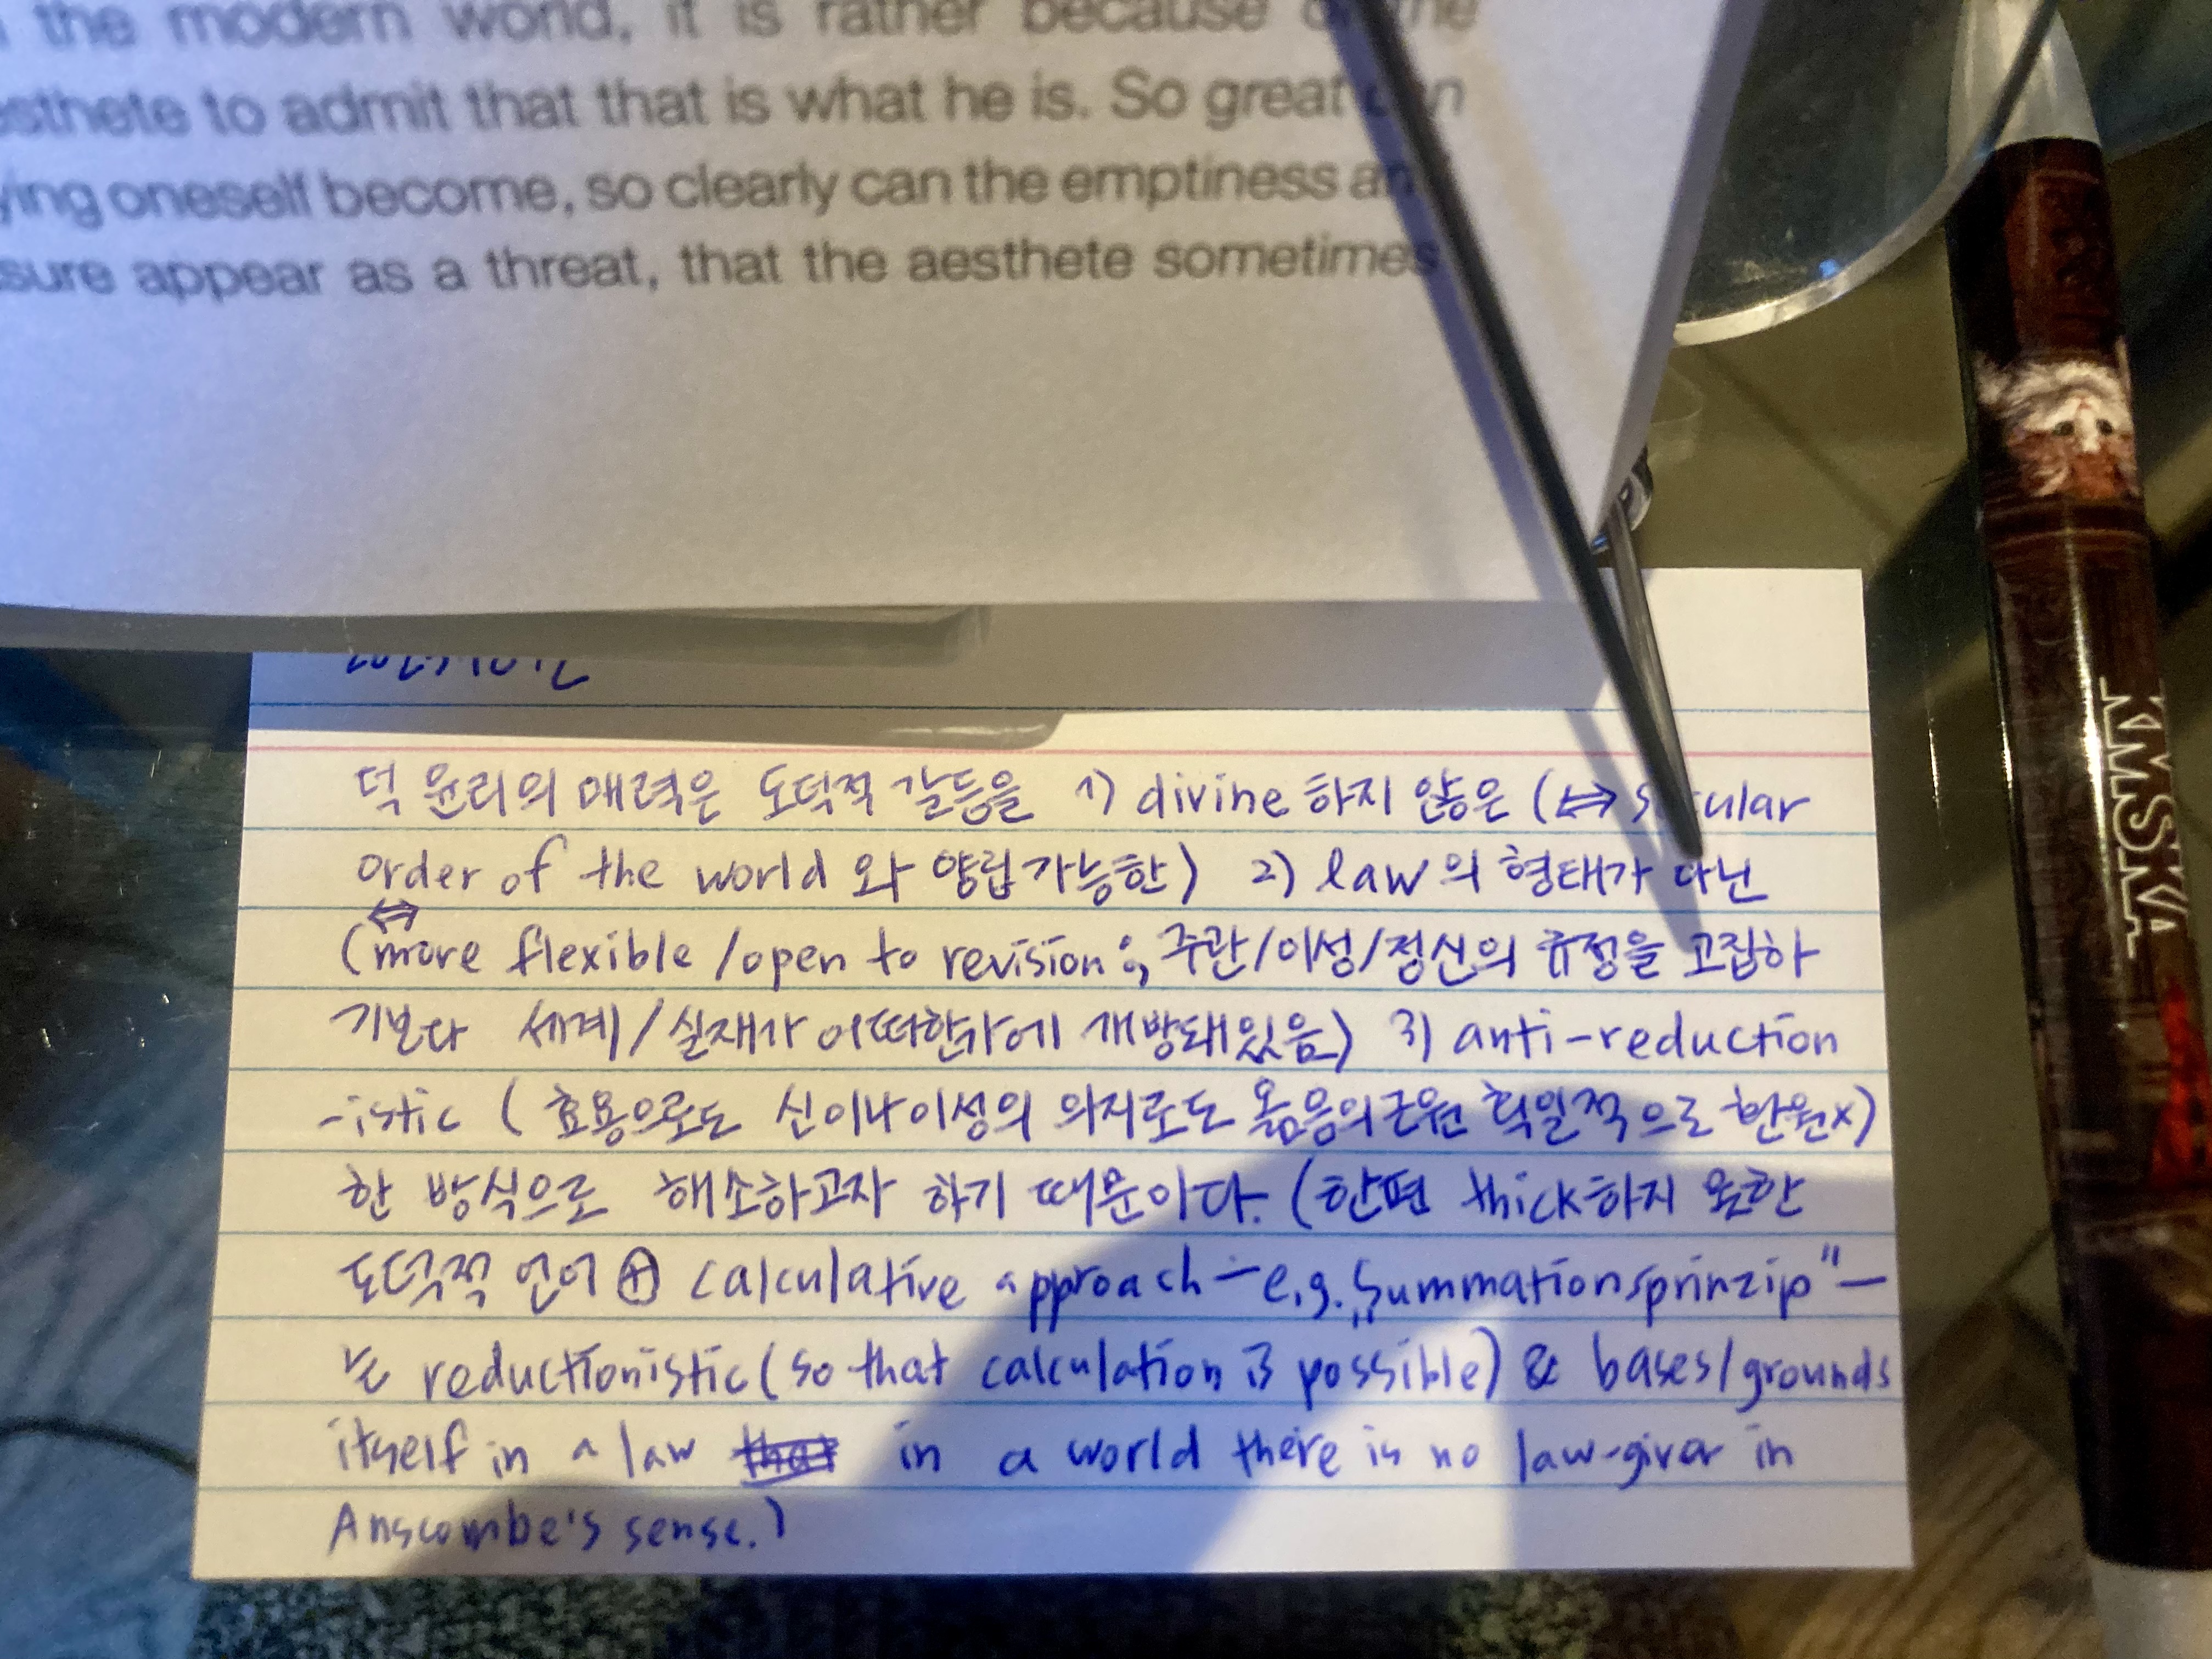 the modern world, it is rather because
esthete to admit that that is what he is. So great
ying oneself become, so clearly can the emptiness
sure appear as a threat, that the aesthete sometimes
덕 윤리의 매력은 도덕적 갈등을 1) divine 하지 않은 (⇔
order of the world 와 양립가능한) 2) law의 형태가 아닌
⇔
(more flexible/open to revision; 주관/이성/정신의 규정을 고집하
기보다 세계/실재가 어떠한가에 개방돼있음) 3) anti-reduction
-istic ( 효용으로도 신이나 이성의 의지로도 옳음의 근원 획일적으로 환원x)
한 방식으로 해소하고자 하기 때문이다. (한편 thick하지 못한
도덕적 언어 ⊕ calculative approach — e.g. „Summationsprinzip" —
는 reductionistic (so that calculation is possible) & bases/grounds
itself in a law in a world there is no law-giver in
Anscombe's sense.)
KMSKA